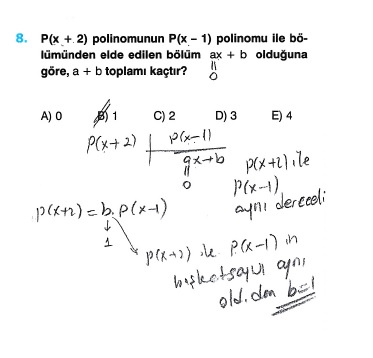 8. P(x + 2) polinomunun P(x – 1) polinomu ile bö-
lümünden elde edilen bölüm ax + b olduğuna
göre, a + b toplamı kaçtır?
0
A) 0 B) 1 C) 2 D) 3 E) 4
P(x+2) P(x-1)
ax+b
0
P(x+2) ile
P(x-1)
aynı dereceli
P(x+2) = b. P(x-1)
1
P(x+2) ile P(x-1) in
başkatsayı aynı
old.dan b=1